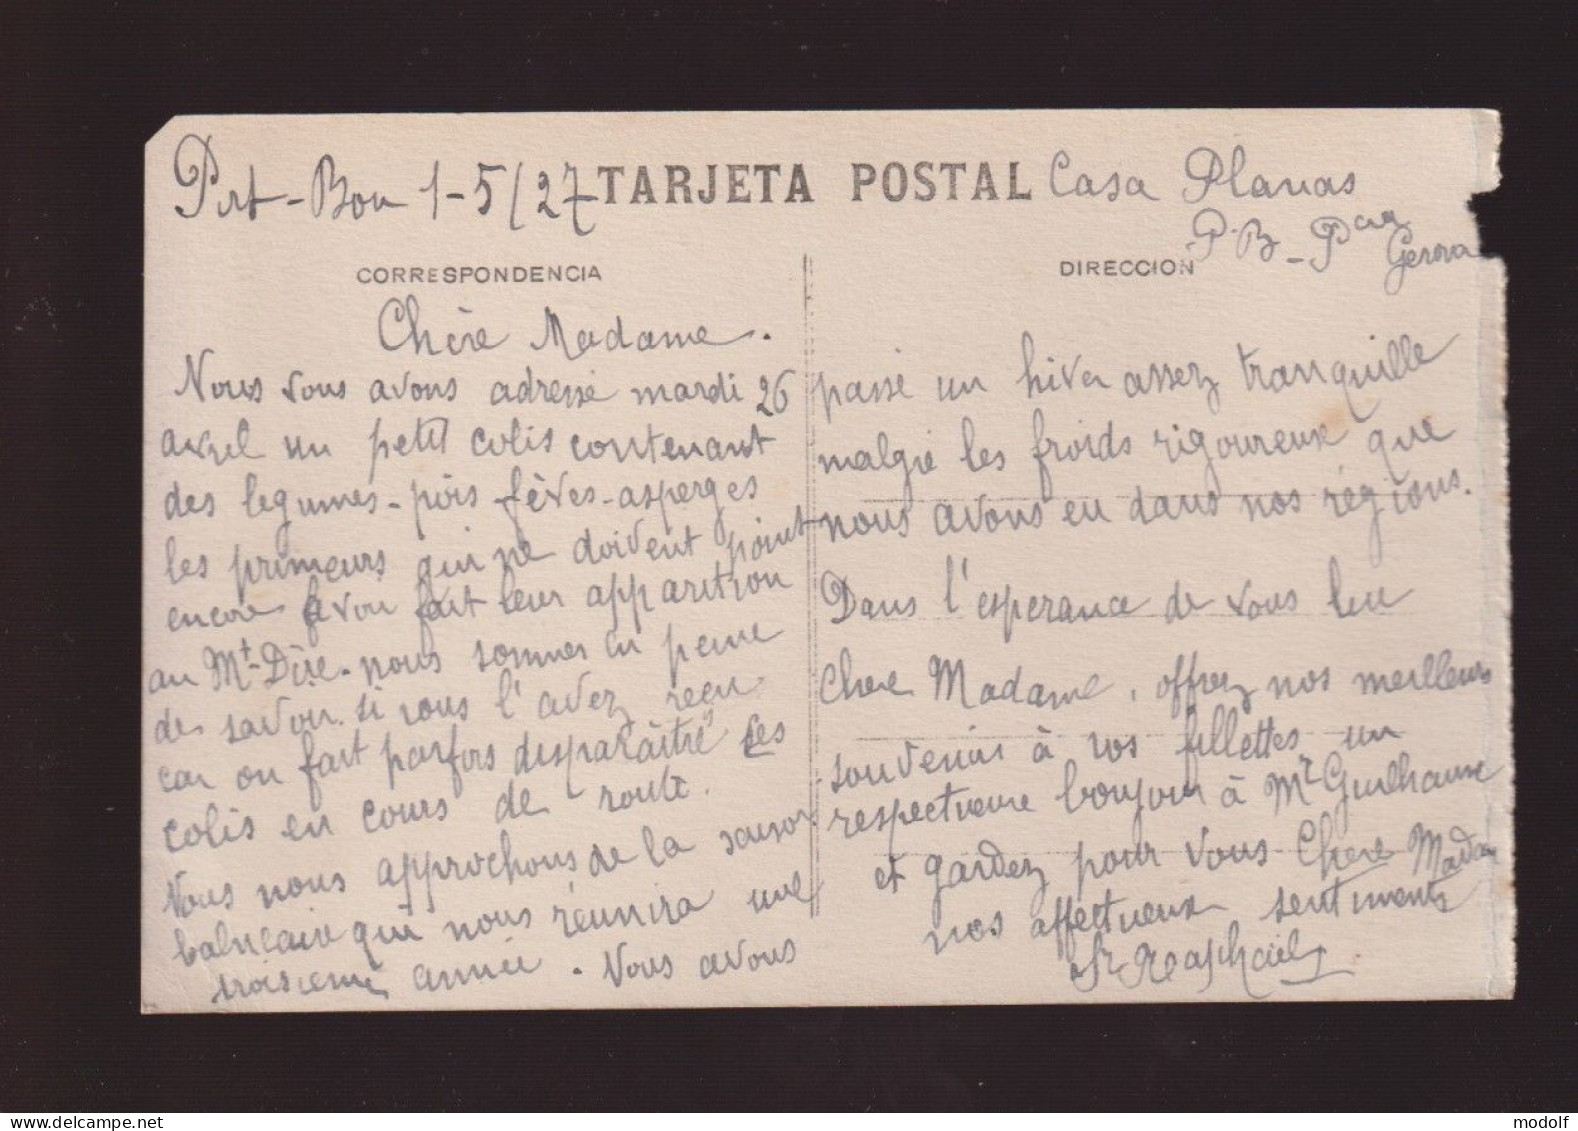 Prt-Bou 1-5/27 TARJETA POSTAL Casa Planas
P.B-Pcia
Gerona
CORRESPONDENCIA
DIRECCION
Chère Madame.
Nous vous avons adressé mardi 26
avril un petit colis contenant
des legumes - pois fèves - asperges
les primeurs qui ne doivent point
encore avoir fait leur apparition
au Mt-Dore. nous sommes en peine
de savoir si vous l'avez reçu
car on fait parfois disparaitre les
colis en cours de route.
Nous nous approchons de la saison
balneaire qui nous réunira une
troisieme année. Nous avons
passé un hiver assez tranquille
malgré les froids rigoureux que
nous avons eu dans nos régions.
Dans l'esperance de vous lire
Chere Madame, offrez nos meilleurs
souvenirs à vos fillettes un
respectueux bonjour à Mr Guilhaume
et gardez pour vous Chere Madame
nos affectueux sentiments
Sr Raphaël
modolf